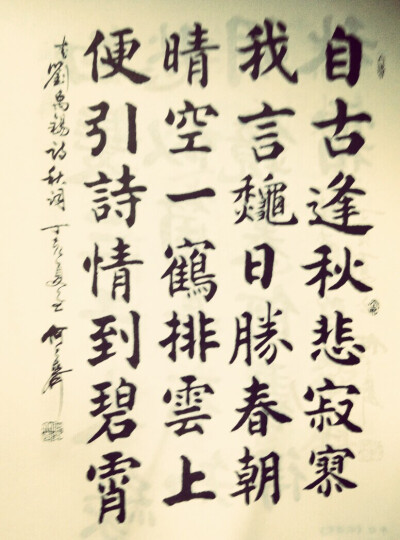 自古逢秋悲寂寥
我言龝日勝春朝
晴空一鶴排雲上
便引詩情到碧霄
劉禹錫詩秋詞 丁亥